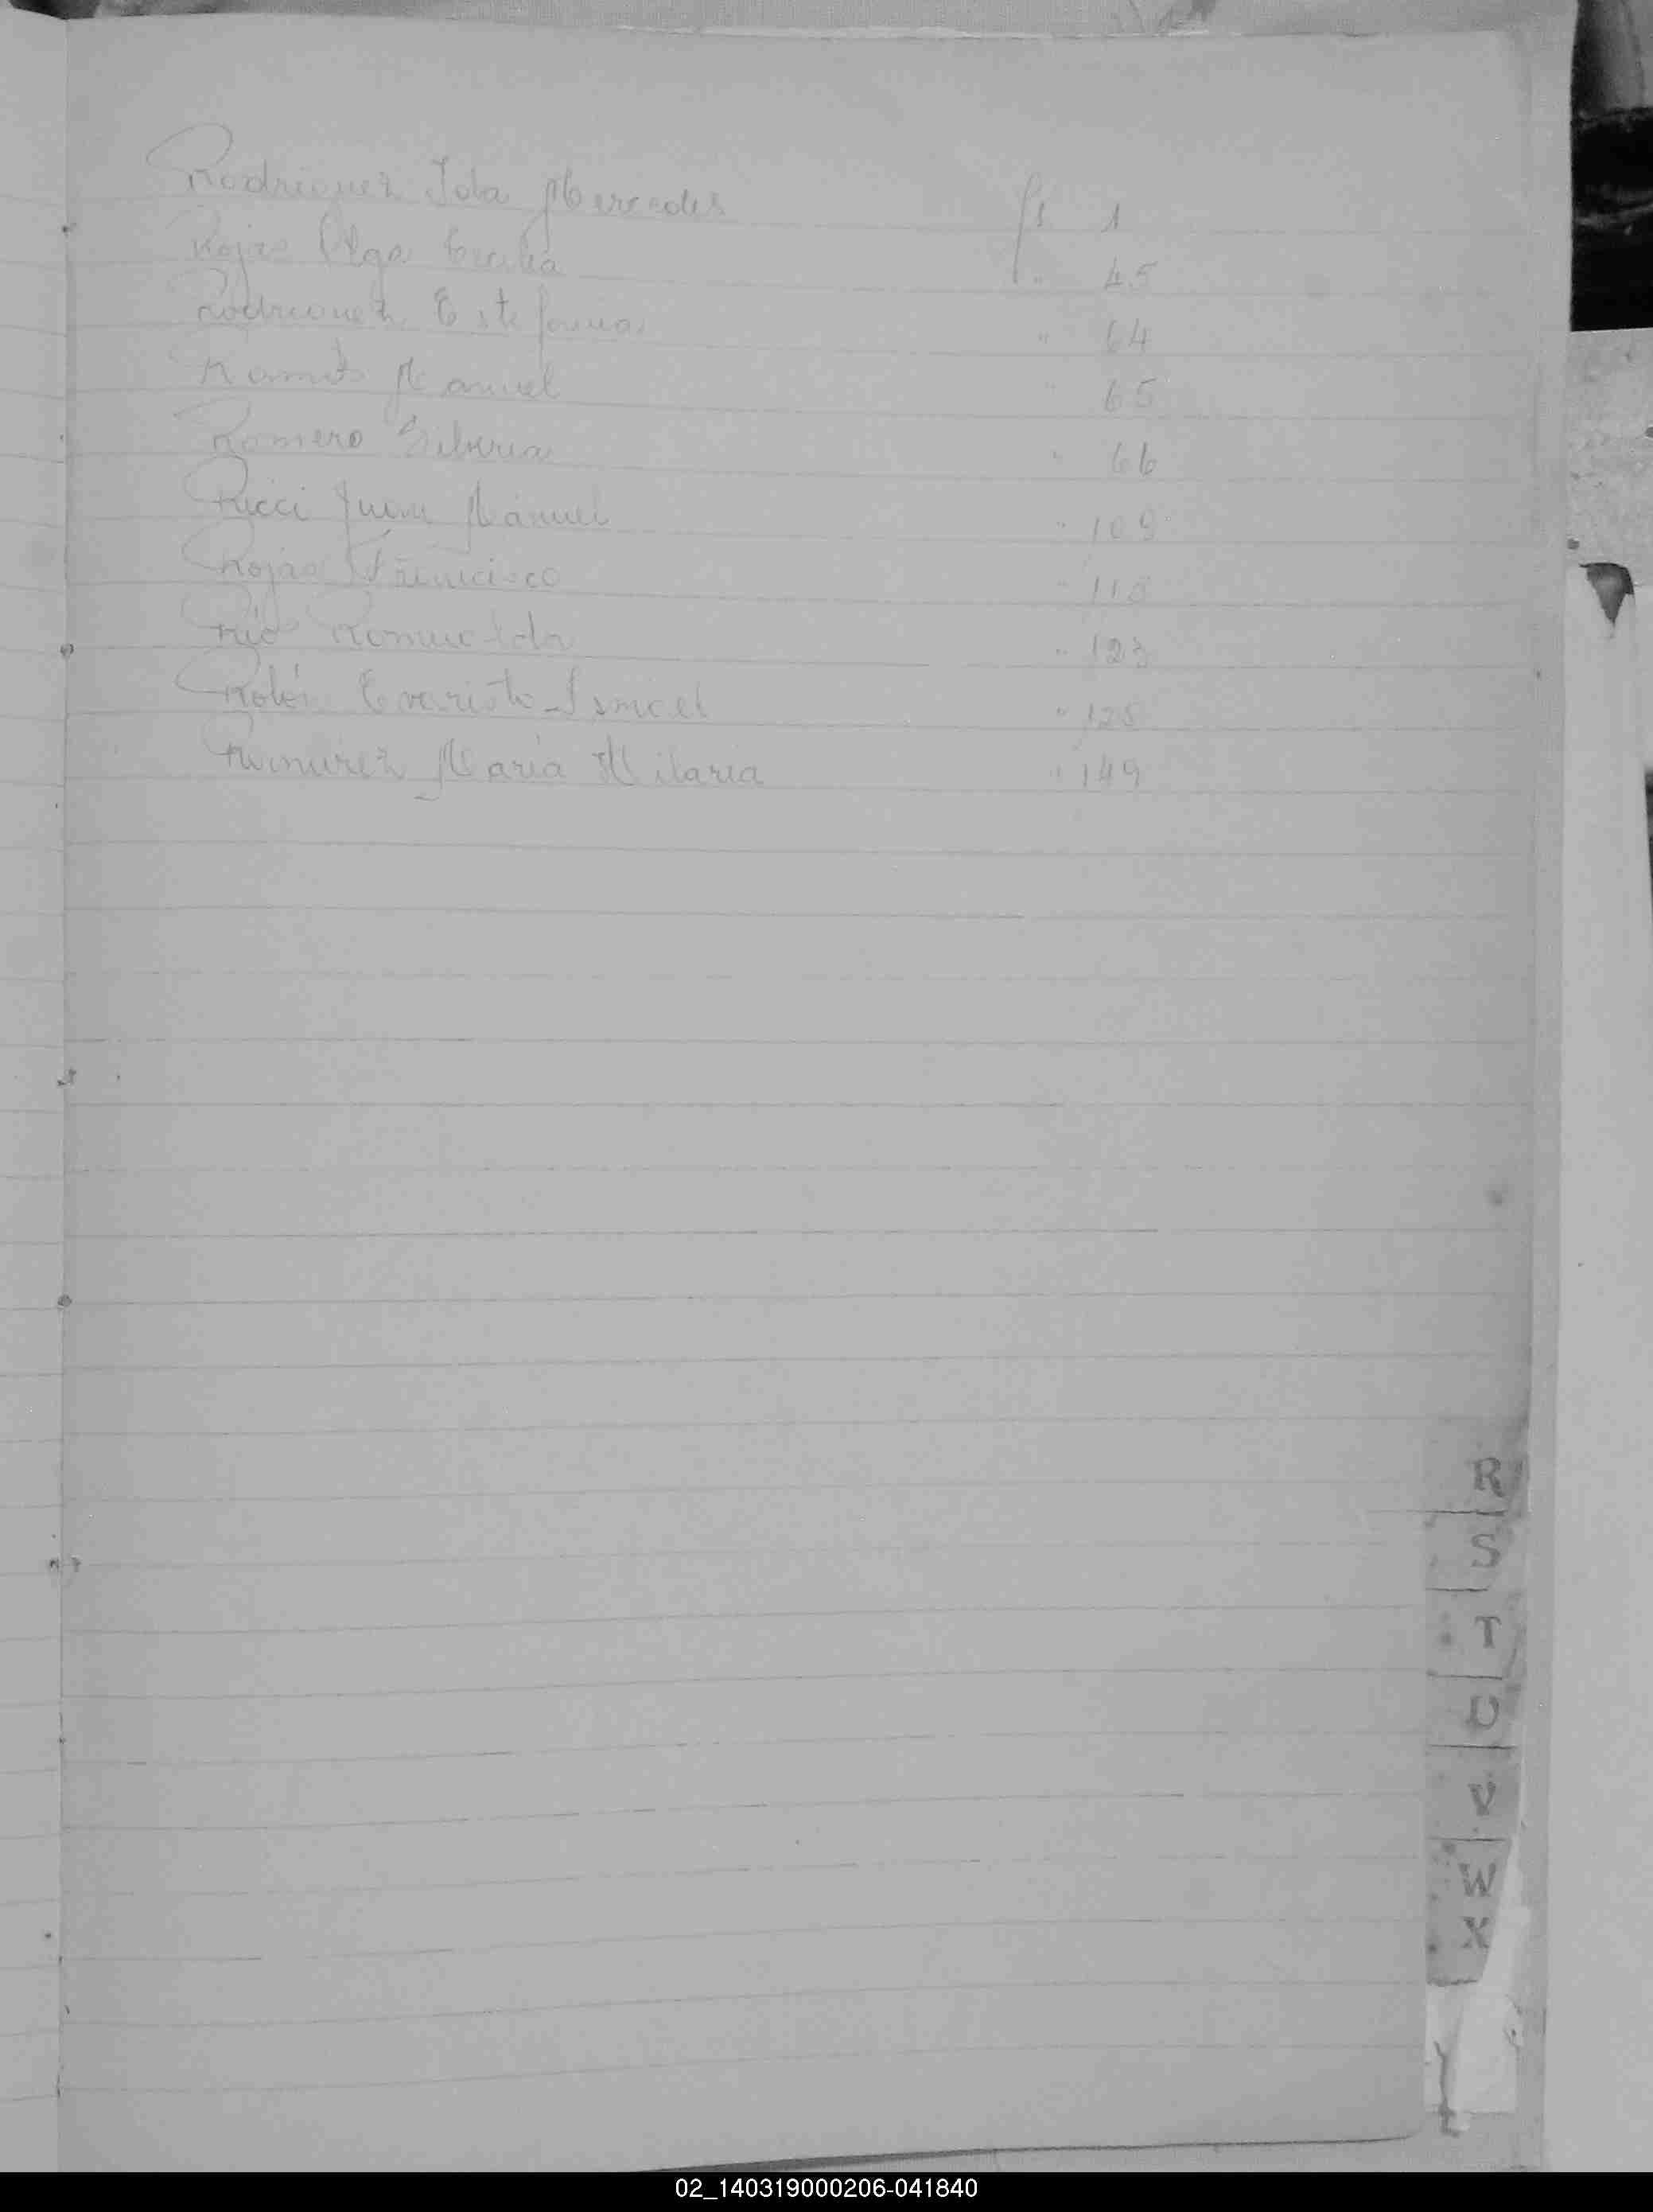 Rodriguez Ida Mercedes fs. 1
Rojas Olga Cecilia " 45
Rodriguez Estefania " 64
Manuel " 65
Romero Silveria " 66
Ricci Juan Manuel " 109
Rojas Francisco " 118
Rio Romualda " 123
Evaristo Ismael " 125
Ramirez María Hilaria " 149
R
S
T
U
V
W
X
02_140319000206-041840